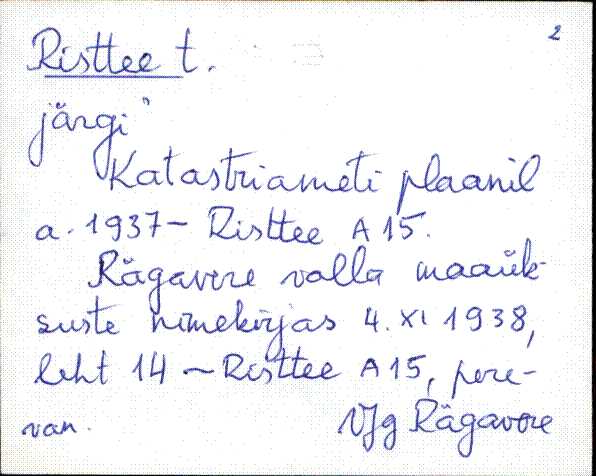 2
Risttee t.
järgi"
Katastriameti plaanil
a. 1937 – Risttee A 15.
Rägavere valla maaük-
suste nimekirjas 4. XI 1938,
leht 14 – Risttee A 15, pere-
van.
VJg Rägavere